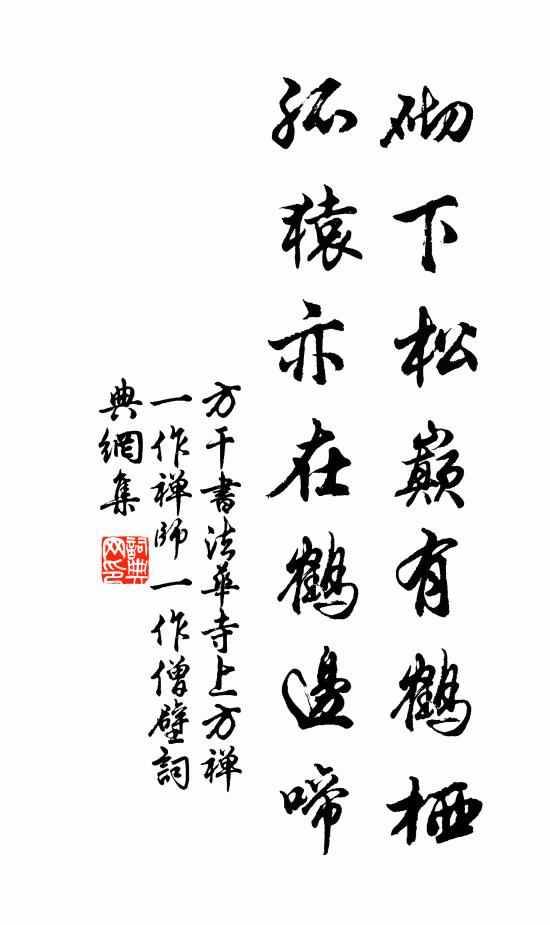 砌下松巔有鶴栖
孤猿亦在鶴邊啼
方干書法華寺上方禅
一作禅師一作僧壁詞
典網集
詞典網印